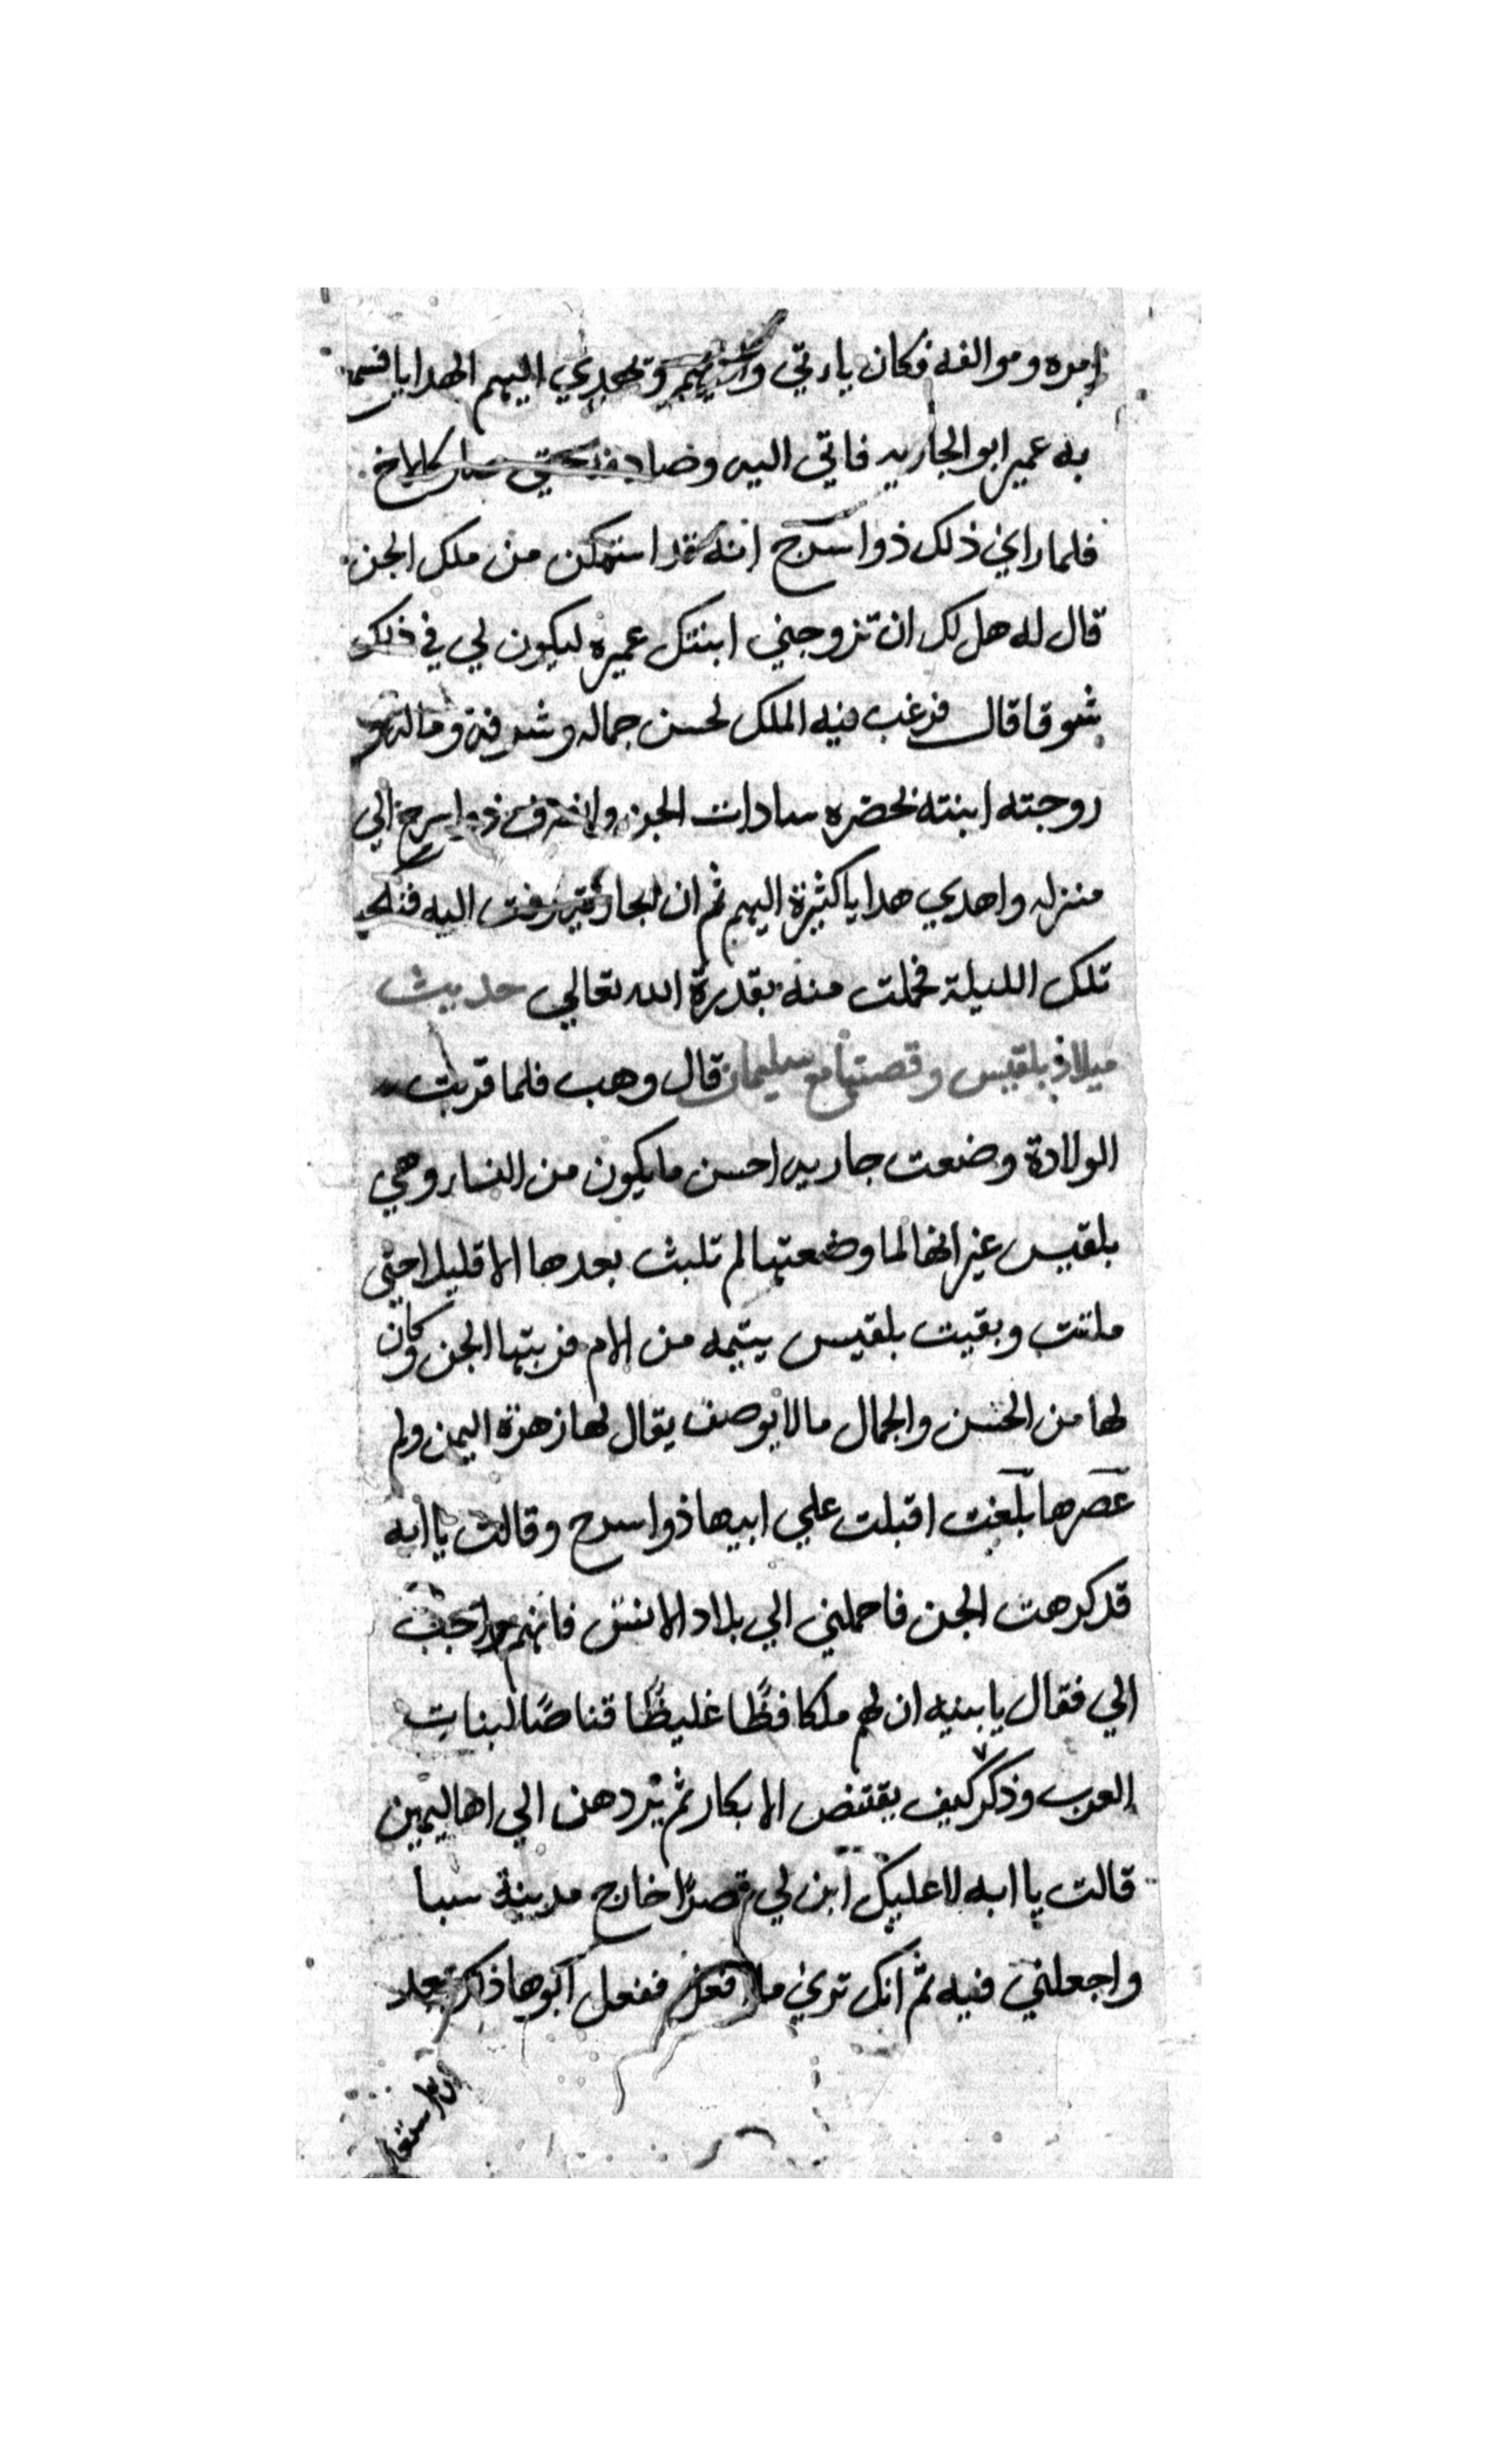 امره وموالفه فكان ياءتي وتهدي اليهم الهدايا فسمع
به عمير ابو الجاريه فاتي اليه وصادفه حتي صار كالاخ
فلما راي ذلك ذوا سرح انه قد استمكن من ملك الجن
قال له هل لك ان تزوجني ابنتك عميره ليكون لي في ذلك
شوقا قال فرغب فيه الملك لحسن جماله وشرفه وماله و
زوجته ابنته بحضره سادات الجن وانصرف ذوا سرح الي
منزله واهدي هدايا كثيرة اليهم ثم ان الجاريه زفت اليه
تلك الليلة فحملت منه بقدرة الله تعالي حديث
ميلاد بلقيس وقصتها مع سليمان قال وهب فلما قربت
الولادة وضعت جاريه احسن ما يكون من النساء وهي
بلقيس غير انها لما وضعتها لم تلبث بعدها الا قليلا حتي
ماتت وبقيت بلقيس يتيمه من الام فربتها الجن وكان
لها من الحسن والجمال ما لا يوصف يقال لها زهرة اليمن ولم
عصرها بلغت اقبلت علي ابيها ذوا سرح وقالت يا ابه
قد كرهت الجن فاحملني الي بلاد الانس فانهم احب
الي فقال يا بنيه ان لهم ملكا فظًا غليظًا قناصًا لبنات
العرب وذكر كيف يقتض الابكار ثم يردهن الي اهاليهن
قالت يا ابه لا عليك ابن لي قصرًا خارج مدينة سبا
واجعلني فيه ثم انك تري ما افعل ففعل ابوها ذلك